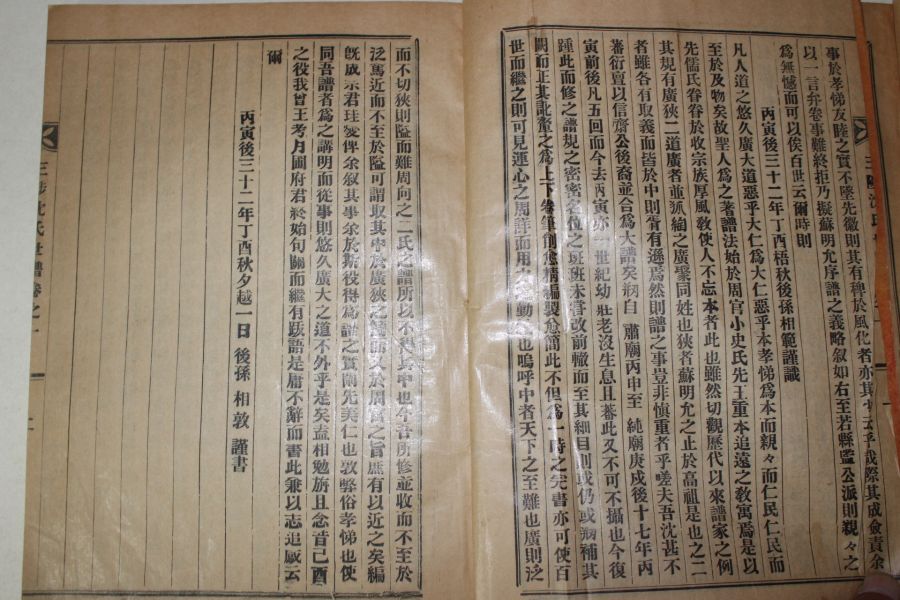 事於孝悌友陸之實不墜先徽則其有稗於風化者亦其 云乎哉際其成僉責余
以一言弁卷事難終拒乃擬蘇明允序譜之義略叙如右至若縣監公派則親々之
爲無憾而可以俟百世云爾時則
丙寅後三十二年丁酉梧秋後孫相範謹識
凡人道之悠久廣大道惡乎大仁爲大仁惡乎本孝悌爲本而親々而仁民仁民而
至於及物矣故聖人爲之著譜法始於周官小史氏先王重本追遠之敎寓焉是以
先儒氏眷眷於收宗族厚風敎使人不忘本者此也雖然切觀歷代以來譜家之例
其規有廣狹二道廣者並派緦之廣聚同姓也狹者蘇明允之止於高祖是也之二
者雖各有取義而皆於中則胥有遜焉然則譜之事豈非愼重者乎嗟夫吾沈甚不
蕃衍賣以信齋公後裔並合爲大譜矣粤自 肅廟丙申至 純廟庚戌後十七年丙
寅前後凡五回而今去丙寅亦一世紀幼壯老沒生息且蕃此又不可不攝也今復
踵此而修之譜規之密密名位之班班未嘗改前轍而至其細目則或仍或刱補其
闕而正其訛釐之爲上下卷筆削愈精編製愈簡此不但爲一時之完書亦可使百
世而繼之則可見運心之周詳而用 動 也嗚呼中者天下之至難也廣則泛
而不切狹則隘而難周向之二氏之譜所以不得其中也今吾所修並收而不至於
泛焉近而不至於隘可謂取其中於廣狹之間而又於周官之旨庶有以近之矣編
旣成宗君珪燮俾余叙其事余於斯役得爲譜之實闡先美仁也敦弊俗孝悌也使
同吾譜者爲之講明而從事則悠久廣大之道不外乎是矣盍相勉旃且念昔己酉
之役我曾王考月圃府君終始句關而繼有跋語是庸不辭而書此兼以志追感云
爾
丙寅後三十二年丁酉秋夕越一日 後孫 相敦 謹書
三陟沈氏世譜卷之一
二
三陟沈氏